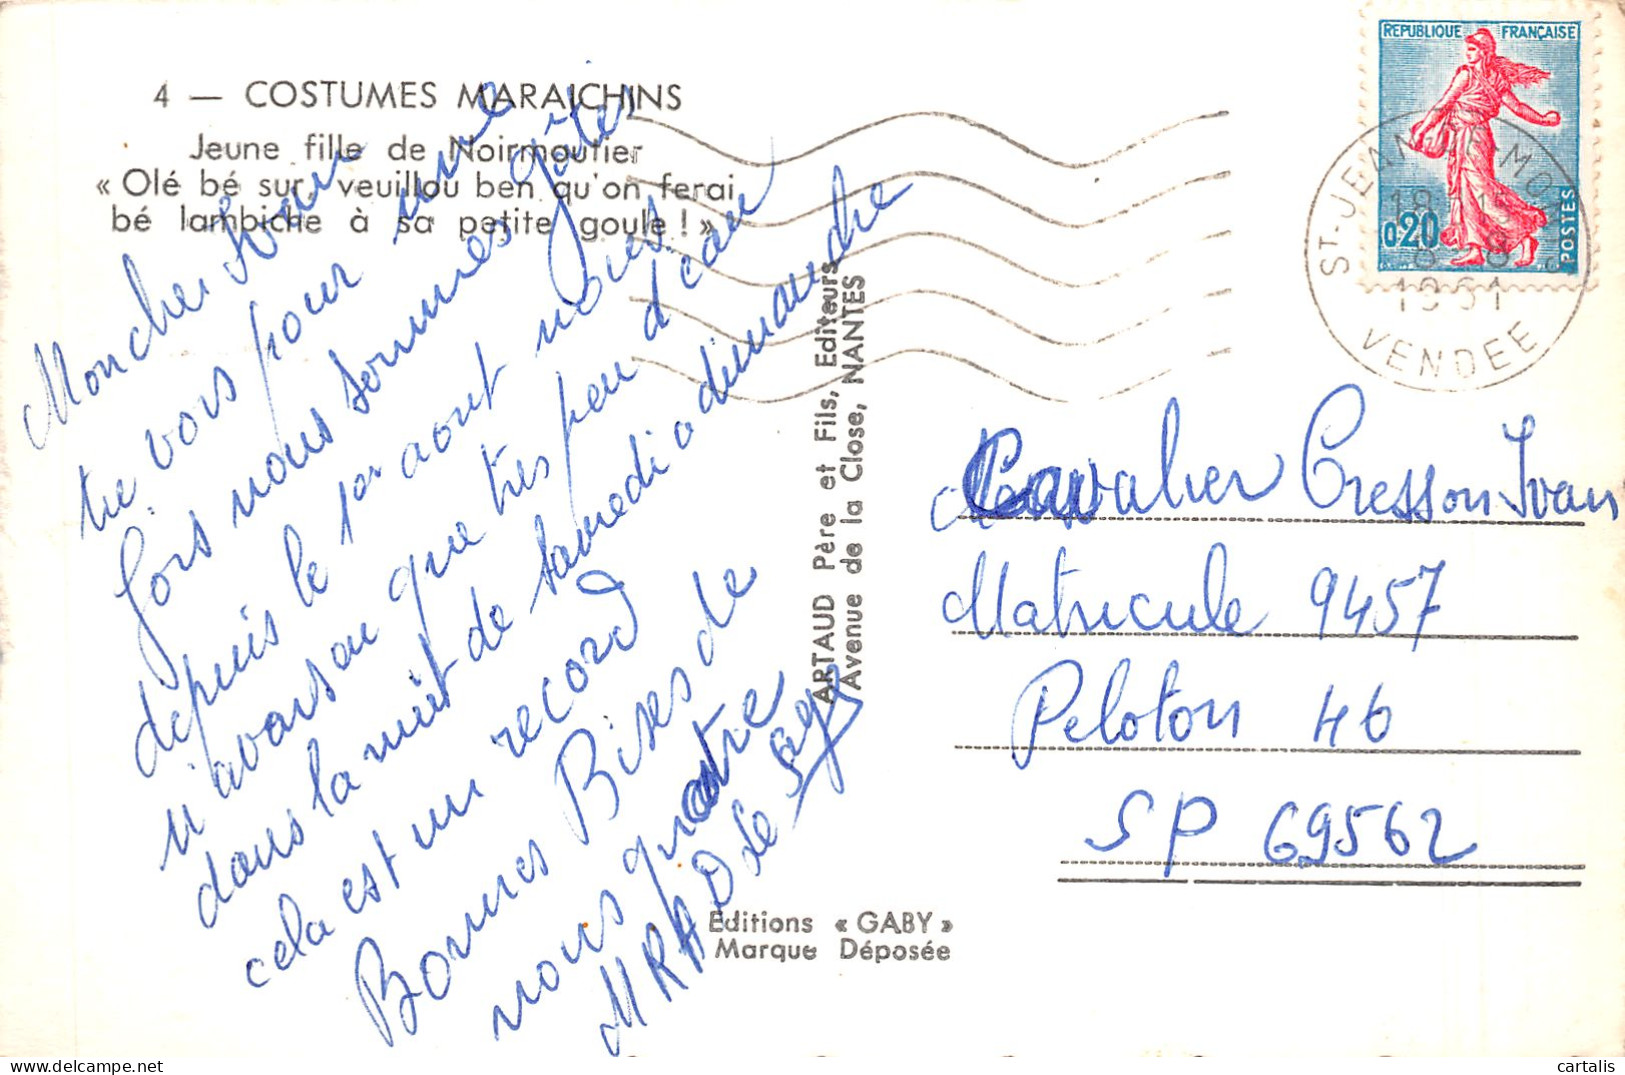 4 — COSTUMES MARAICHINS
Jeune fille de Noirmoutier
« Olé bé sur, veuillou ben qu'on ferai
bé lambiche à sa petite goule ! »
Mon cher Ivan
tu vois pour une
fois nous sommes gâtés
depuis le 1er aout nous
n'avons eu que très peu d'eau
dans la nuit de samedi a dimanche
cela est un record
Bonnes Bises de
nous quatre
MRAD Le
ARTAUD Père et Fils, Editeurs
Avenue de la Close, NANTES
Editions « GABY »
Marque Déposée
REPUBLIQUE FRANÇAISE
0,20
POSTES
ST-JEAN-DE-MONTS
18
8-8
1961
VENDEE
Cavalier Cresson Ivan
Matricule 9457
Peloton 46
SP 69562
cartalis